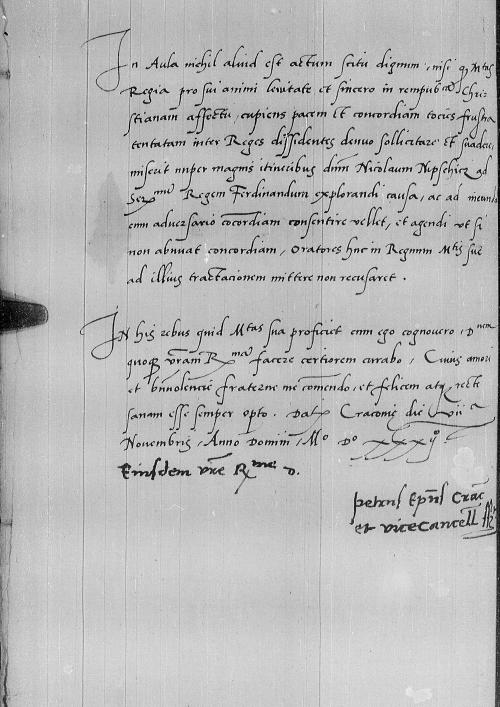 In Aula nichil aliud est actum scitu dignum, nisi q Mtas
Regia pro sui animi levitate et sincero in rempubcam Chri-
stianam affectu, cupiens pacem et concordiam tocies frustra
tentatam inter Reges dissidentes denuo sollicitare et suadere,
miserat nuper magnis itineribus dnm Nicolaum Nipschicz ad
Serxmum Regem Ferdinandum explorandi causa, ac ad ineundam
cum adversario cocordiam consentire vellet, et agendi ut si
non abnuat concordiam, oratores huc in Regnum Mtis sue
ad illius tractacionem mittere non recusaret.
IN his rebus quid Mtas sua proficiet cum ego cognovero, Dnem
quoq vram Rmam facere certiorem curabo, Cuius amori
et bnvolencie fraterne me comendo, et felicem atq recte
sanam esse semper opto. Dat Cracovie die vii a
Novembris, Anno Domini, Mo Do xxxijo
Eiusdem vre Rme D.
petrus Epus Crac
et vicecancell